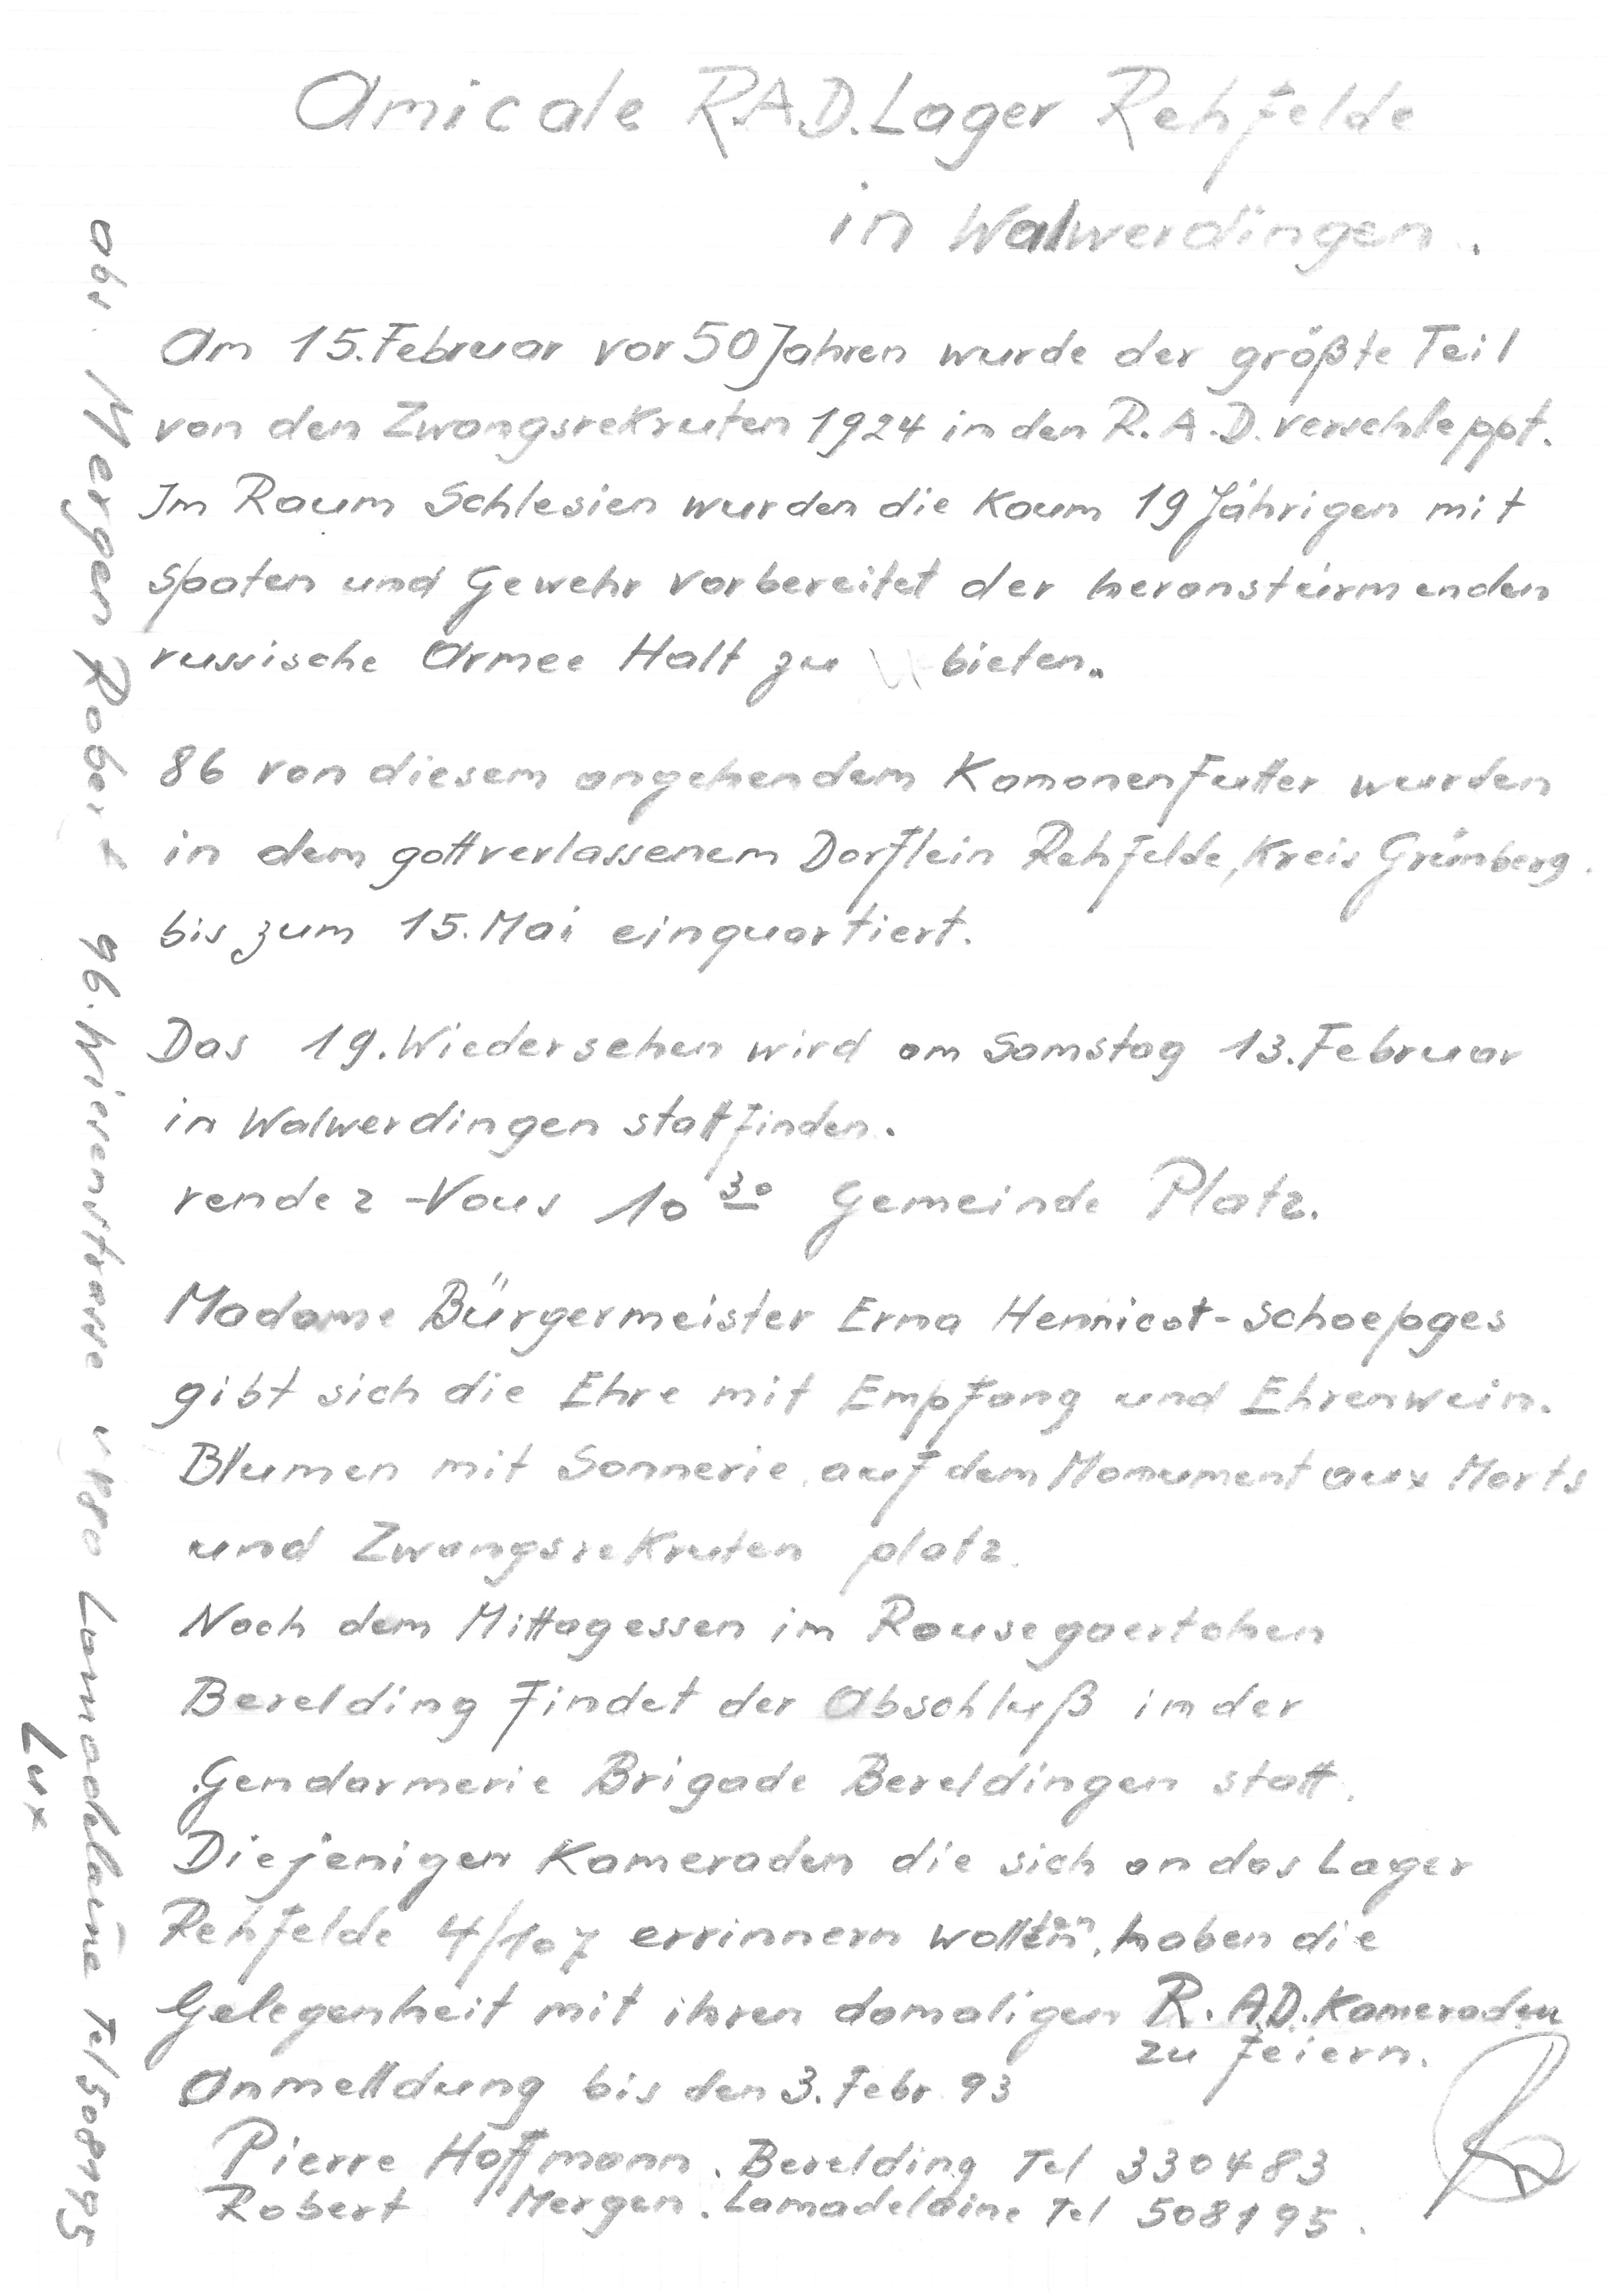 Amicale R.A.D. Lager Rehfelde
in Walwerdingen.
Am 15. Februar vor 50 Jahren wurde der größte Teil
von den Zwangsrekruten 1924 in den R.A.D. verschleppt.
Im Raum Schlesien wurden die kaum 19 Jährigen mit
Spaten und Gewehr vorbereitet der heranstürmenden
russische Armee Halt zu bieten.
86 von diesem angehendem Kanonenfutter wurden
in dem gottverlassenem Dorflein Rehfelde, Kreis Grünberg.
bis zum 15. Mai einquartiert.
Das 19. Wiedersehen wird am Samstag 13. Februar
in Walwerdingen stattfinden.
rendez-Vous 10 30 Gemeinde Platz.
Madame Bürgermeister Erna Hennicot-Schoepges
gibt sich die Ehre mit Empfang und Ehrenwein.
Blumen mit Sonnerie auf dem Monument aux Morts
und Zwangsrekruten platz.
Nach dem Mittagessen im Rousegaertchen
Berelding findet der Abschluß in der
Gendarmerie Brigade Bereldingen statt.
Diejenigen Kameraden die sich an das Lager
Rehfelde 4/107 errinnern wollten, haben die
Gelegenheit mit ihren damaligen R.A.D. Kameraden
zu feiern.
Anmelldung bis den 3. Febr. 93
Pierre Hoffmann. Berelding Tel 330483
Robert Mergen. Lamadelaine Tel 508195.
abs. Mergen Robert 96. Wiesenstrasse Lamadelaine Tel 508195
Lux